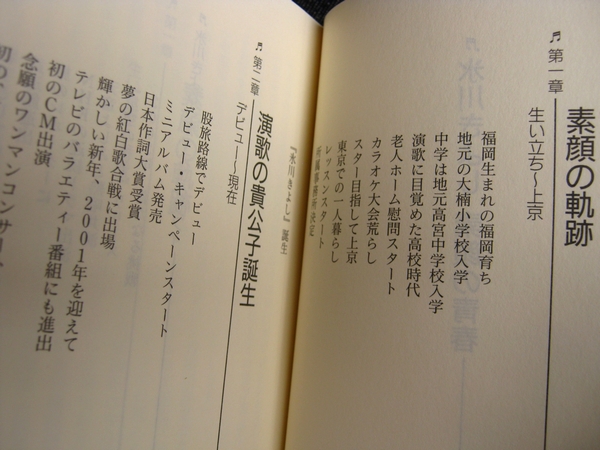 ♬ 第一章
素顔の軌跡
生い立ち〜上京
福岡生まれの福岡育ち
地元の大楠小学校入学
中学は地元高宮中学校入学
演歌に目覚めた高校時代
老人ホーム慰問スタート
カラオケ大会荒らし
スター目指して上京
東京での一人暮らし
レッスンスタート
所属事務所決定
『氷川きよし』誕生
♬ 第二章
演歌の貴公子誕生
デビュー〜現在
股旅路線でデビュー
デビュー・キャンペーンスタート
ミニアルバム発売
日本作詞大賞受賞
夢の紅白歌合戦に出場
輝かしい新年、2001年を迎えて
テレビのバラエティー番組にも進出
初のCM出演
念願のワンマンコンサート